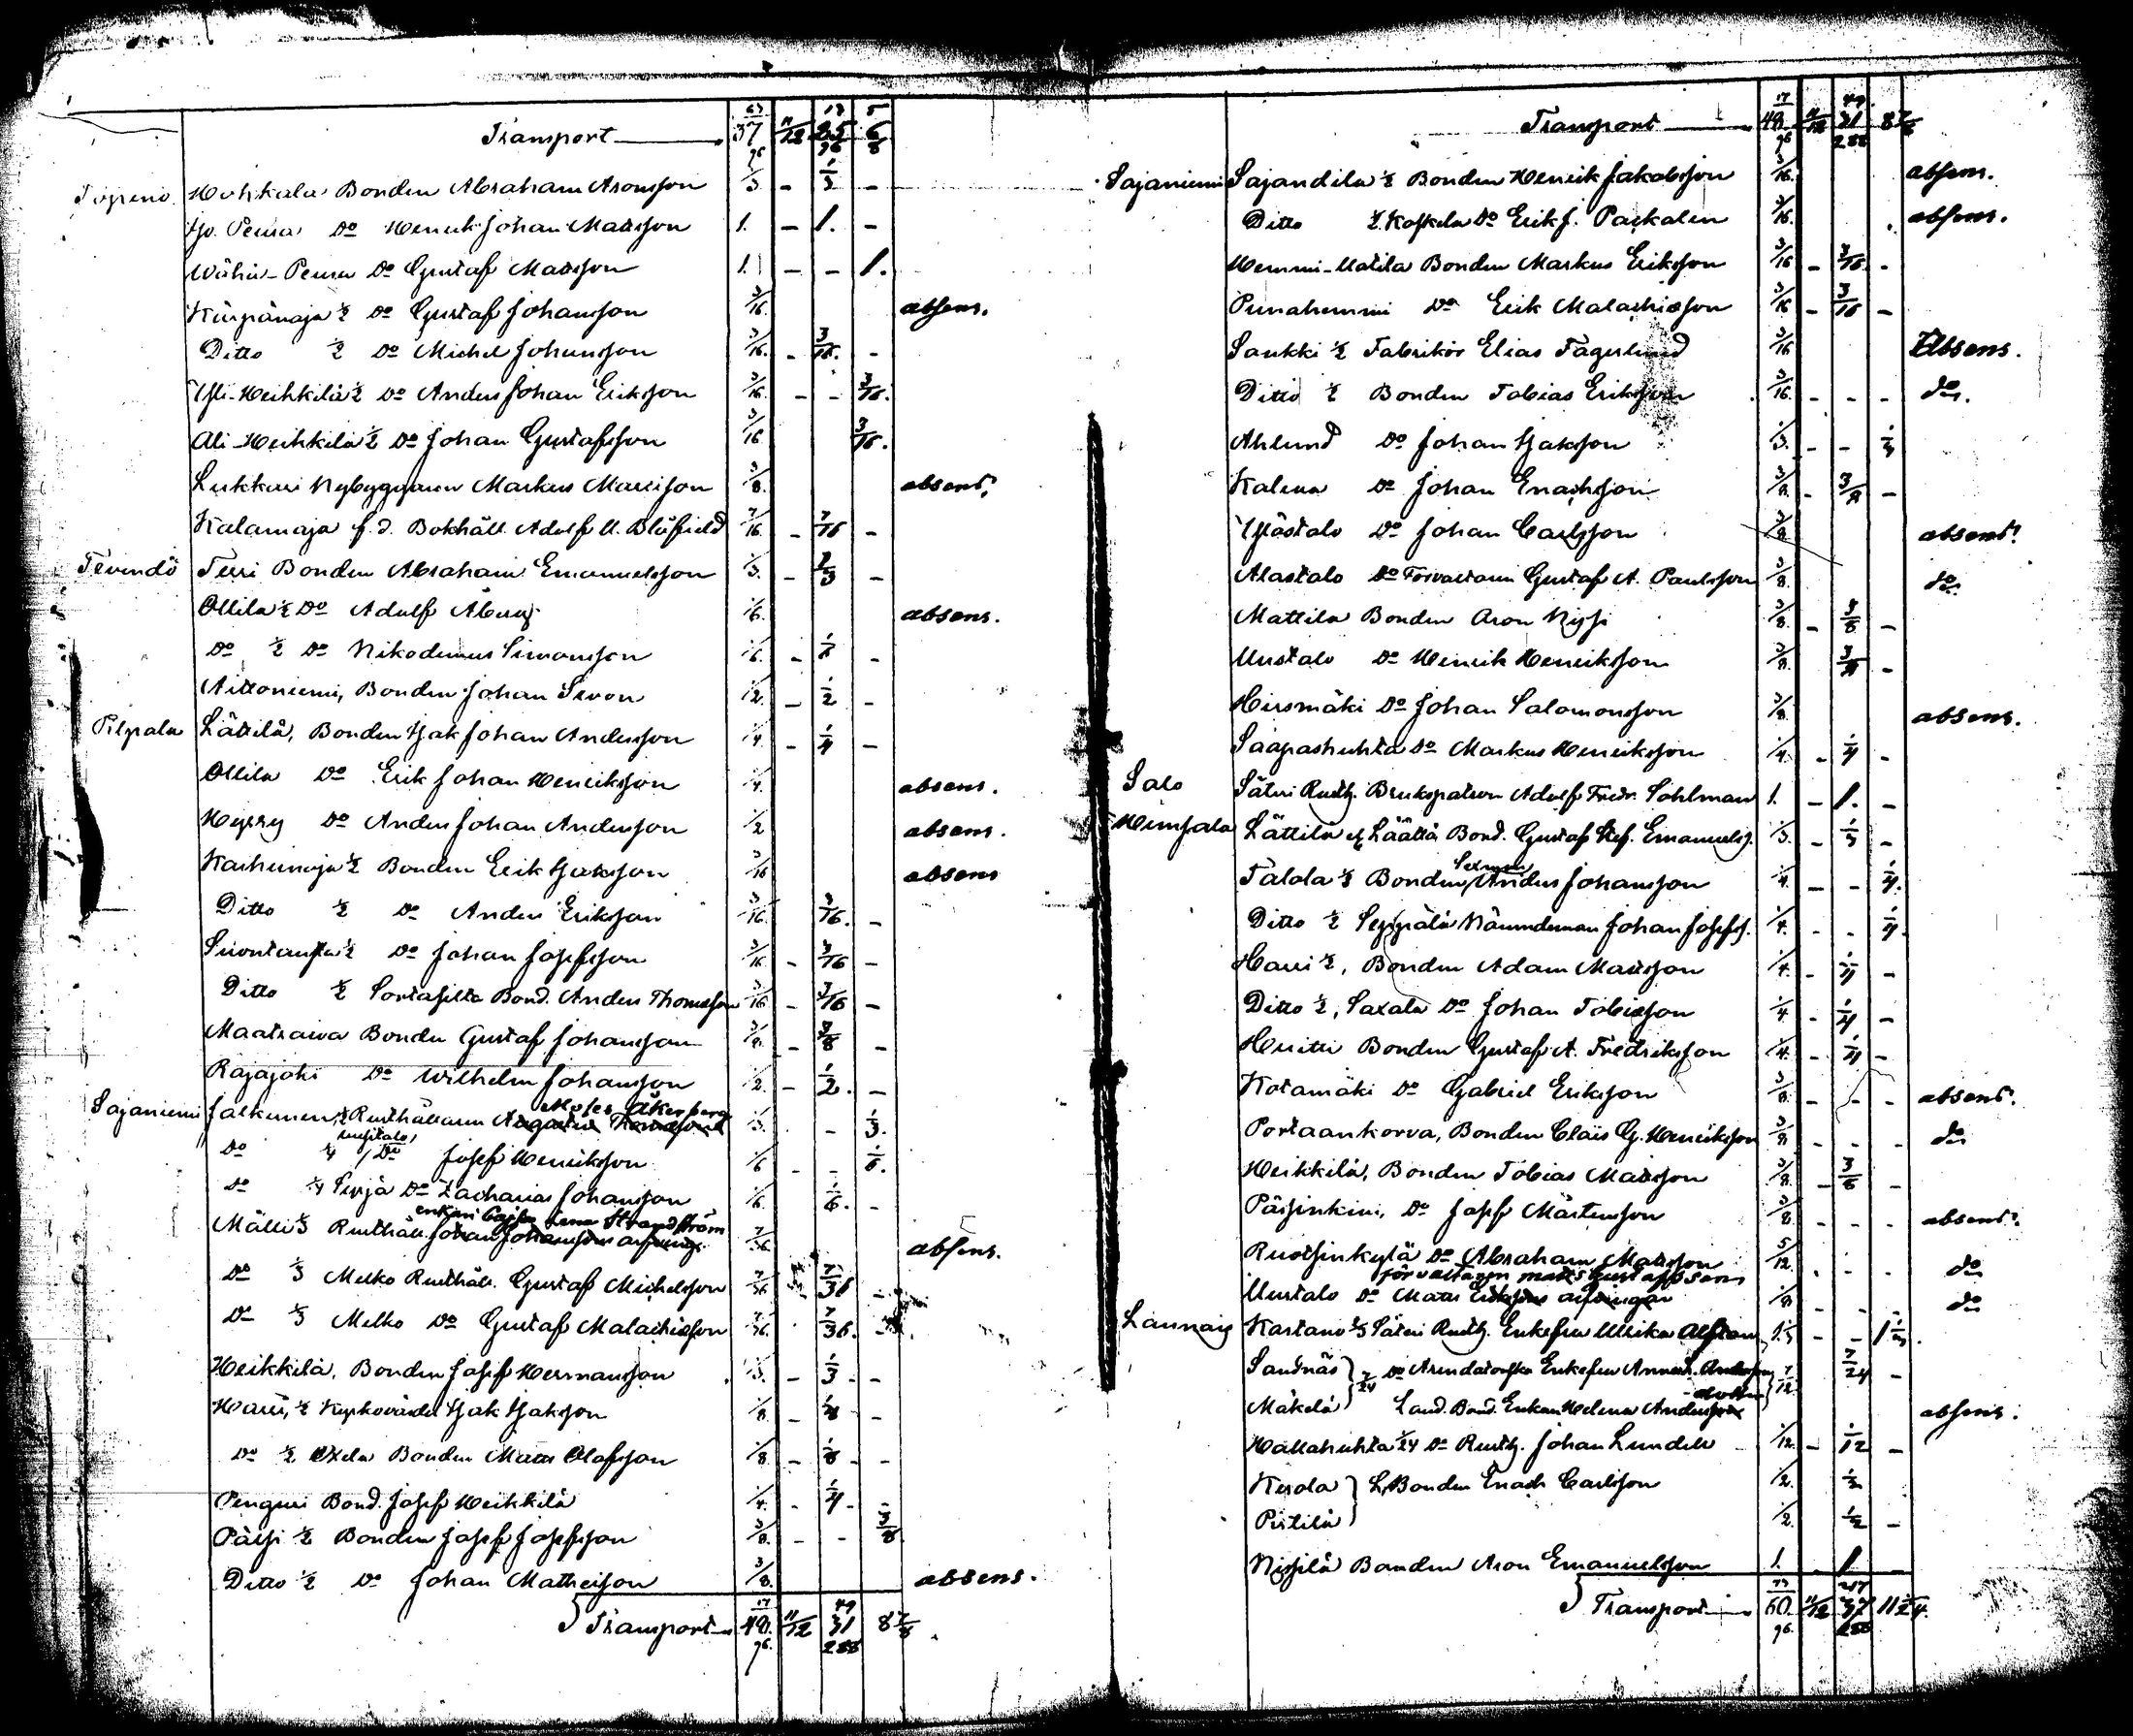 Transport 37 63/96 11/12 25 13/96 6 5/8
Topeno Hohkala Bonden Abraham Aronsson 1/3 - 1/3 -
Iso Peura Do Henrik Johan Matsson 1. - 1. -
Wähä-Peura Do Gustaf Matsson 1. - - 1.
Kärpänoja 1/2 Do Gustaf Johansson 3/16 absens.
Ditto 1/2 Do Michel Johansson 3/16. - 3/16. -
Yli-Heikkilä 1/2 Do Anders Johan Eriksson 3/16. - - 3/16.
Ali-Heikkilä 1/2 Do Johan Gustafsson 3/16 3/16.
Lukkari Nybyggaren Markus Mattsson 3/8. absens.
Kalamaja f.d. Bokhåll. Adolf U. Blåfield 7/16. - 7/16 -
Tevendö Terri Bonden Abraham Emanuelsson 1/3. - 1/3 -
Ollila 1/2 Do Adolf Åberg 1/6. absens.
Do 1/2 Do Nikodemus Simonsson 1/6. - 1/6 -
Aittoniemi, Bonden Johan Sivon 1/2. - 1/2 -
Pilpala Lättilä, Bonden Isak Johan Andersson 1/4. - 1/4 -
Ollila Do Erik Johan Henriksson 1/4. absens.
Hyrry Do Anders Johan Andersson 1/2 absens.
Karhunoja 1/2 Bonden Erik Isaksson 3/16 absens
Ditto 1/2 Do Anders Eriksson 3/16. 3/16. -
Suontausta 1/2 Do Johan Josefsson 3/16. - 3/16 -
Ditto 1/2 Sortasilta Bond. Anders Thomasson 3/16 - 3/16 -
Maatraiva Bonden Gustaf Johansson 3/8. - 3/8 -
Rajajoki Do Wilhelm Johansson 1/2. - 1/2. -
Moses Åkerberg
Sajaniemi Jalkunen, 1/2 Rusthållaren Augustus Thomasson 1/3. - 1/3.
Do 1/4 Uusitalo, Do Josef Henriksson 1/6 - - 1/6.
Do 1/4 Seppä Do Zacharias Johansson 1/6. 1/6. -
enkan Cajsa Lena Strandström
Mälli 1/3 Rusthåll. Johan Johansson arfvingr. 7/36 absens.
Do 1/3 Melko Rusthåll. Gustaf Michelsson 7/36 7/36 -
Do 1/3 Melko Do Gustaf Malachiasson 7/36. 7/36. -
Heikkilä, Bonden Josef Hermansson 1/3. - 1/3 - -
Harri, 1/2 Kyrkovärden Isak Isaksson 1/8 - 1/8 -
Do 1/2 Ekela Bonden Mats Olofsson 1/8 - 1/8 - -
Penguri Bond. Josef Heikkilä 1/4. - 1/4. -
Pärssi 1/2 Bonden Josef Josefsson 3/8. - - 3/8.
Ditto 1/2 Do Johan Matheisson 3/8. absens.
Transport 49 17/96. 11/12 31 49/288 8 7/8.
Transport 49 17/96 11/12 31 49/288 8 7/8
Sajaniemi Sajandila 1/2 Bonden Henrik Jakobsson 3/16. absens.
Ditto 1/2 Koskela Do Erik J. Packalen 3/16. absens.
Hemmi-Uotila Bonden Markus Eriksson 3/16 - 3/16. -
Punahemmi Do Erik Malachiasson 3/16 - 3/16 -
Saukki 1/2 Fabrikör Elias Fagerlund 3/16 Absens.
Ditto 1/2 Bonden Tobias Eriksson 3/16. - - - do.
Ahlund Do Johan Isaksson 1/3. - - 1/3
Kaleva Do Johan Enachsson 3/8. - 3/8 -
Ylöstalo Do Johan Carlsson 3/8 absens.
Alastalo Do Förvaltaren Gustaf A. Paulsson 3/8. do
Mattila Bonden Aron Nissi 3/8. - 3/8 -
Uustalo Do Henrik Henriksson 3/8. 3/8 -
Hirsmäki Do Johan Salomonsson 3/8. absens.
Saapashuhta Do Markus Henriksson 1/4. - 1/4 -
Salo Säteri Rusth. Brukspatron Adolf Fredr. Sohlman 1. - 1. -
Heinsala Lättilä & Läätti Bond. Gustaf Stef. Emanuelss. 1/3. - 1/3 -
Talola 1/2 Bonden, Sexman Anders Johansson 1/4. - - 1/4.
Ditto 1/2 Seppälä Nämndeman Johan Josefss. 1/4. - - 1/4.
Harri 1/2, Bonden Adam Matsson 1/4. - 1/4 -
Ditto 1/2, Saxala Do Johan Tobiasson 1/4 - 1/4 -
Heritti Bonden Gustaf A. Fredriksson 1/4. - 1/4 -
Kotamäki Do Gabriel Eriksson 3/8. - - - absens.
Portaankorva, Bonden Claës G. Henriksson 3/8 - - - do
Heikkilä, Bonden Tobias Matsson 3/8. - 3/8 -
Pärsinkivi, Do Josef Mårtensson 3/8 - - - absens.
Ruotsinkylä Do Abraham Matsson 5/12. - - - do
förvaltaren Mats Gustafsson
Uustalo Do Mats Erikssons arfvingar 1/8 - - do
Launais Kartano 2/3 Säteri Rusth. Enkefru Ulrika Alftan 1 1/3 - - 1 1/3.
Sandnäs } 7/24 Do Arendatorskan Enkefru Anna Andersson 7/12 7/24 -
Mäkelä } Land. Bond. Enkan Helena Andersdotter absens.
Hallahuhta 1/24 Do Rusth. Johan Lundell 1/12. - 1/12 -
Kerola } L. Bonden Enach Carlsson 1/2. 1/2
Pirtilä } 1/2. 1/2 -
Nissilä Bonden Aron Emanuelsson 1. - 1 -
Transport 60 73/96. 11/12 37 47/288 11 5/24.